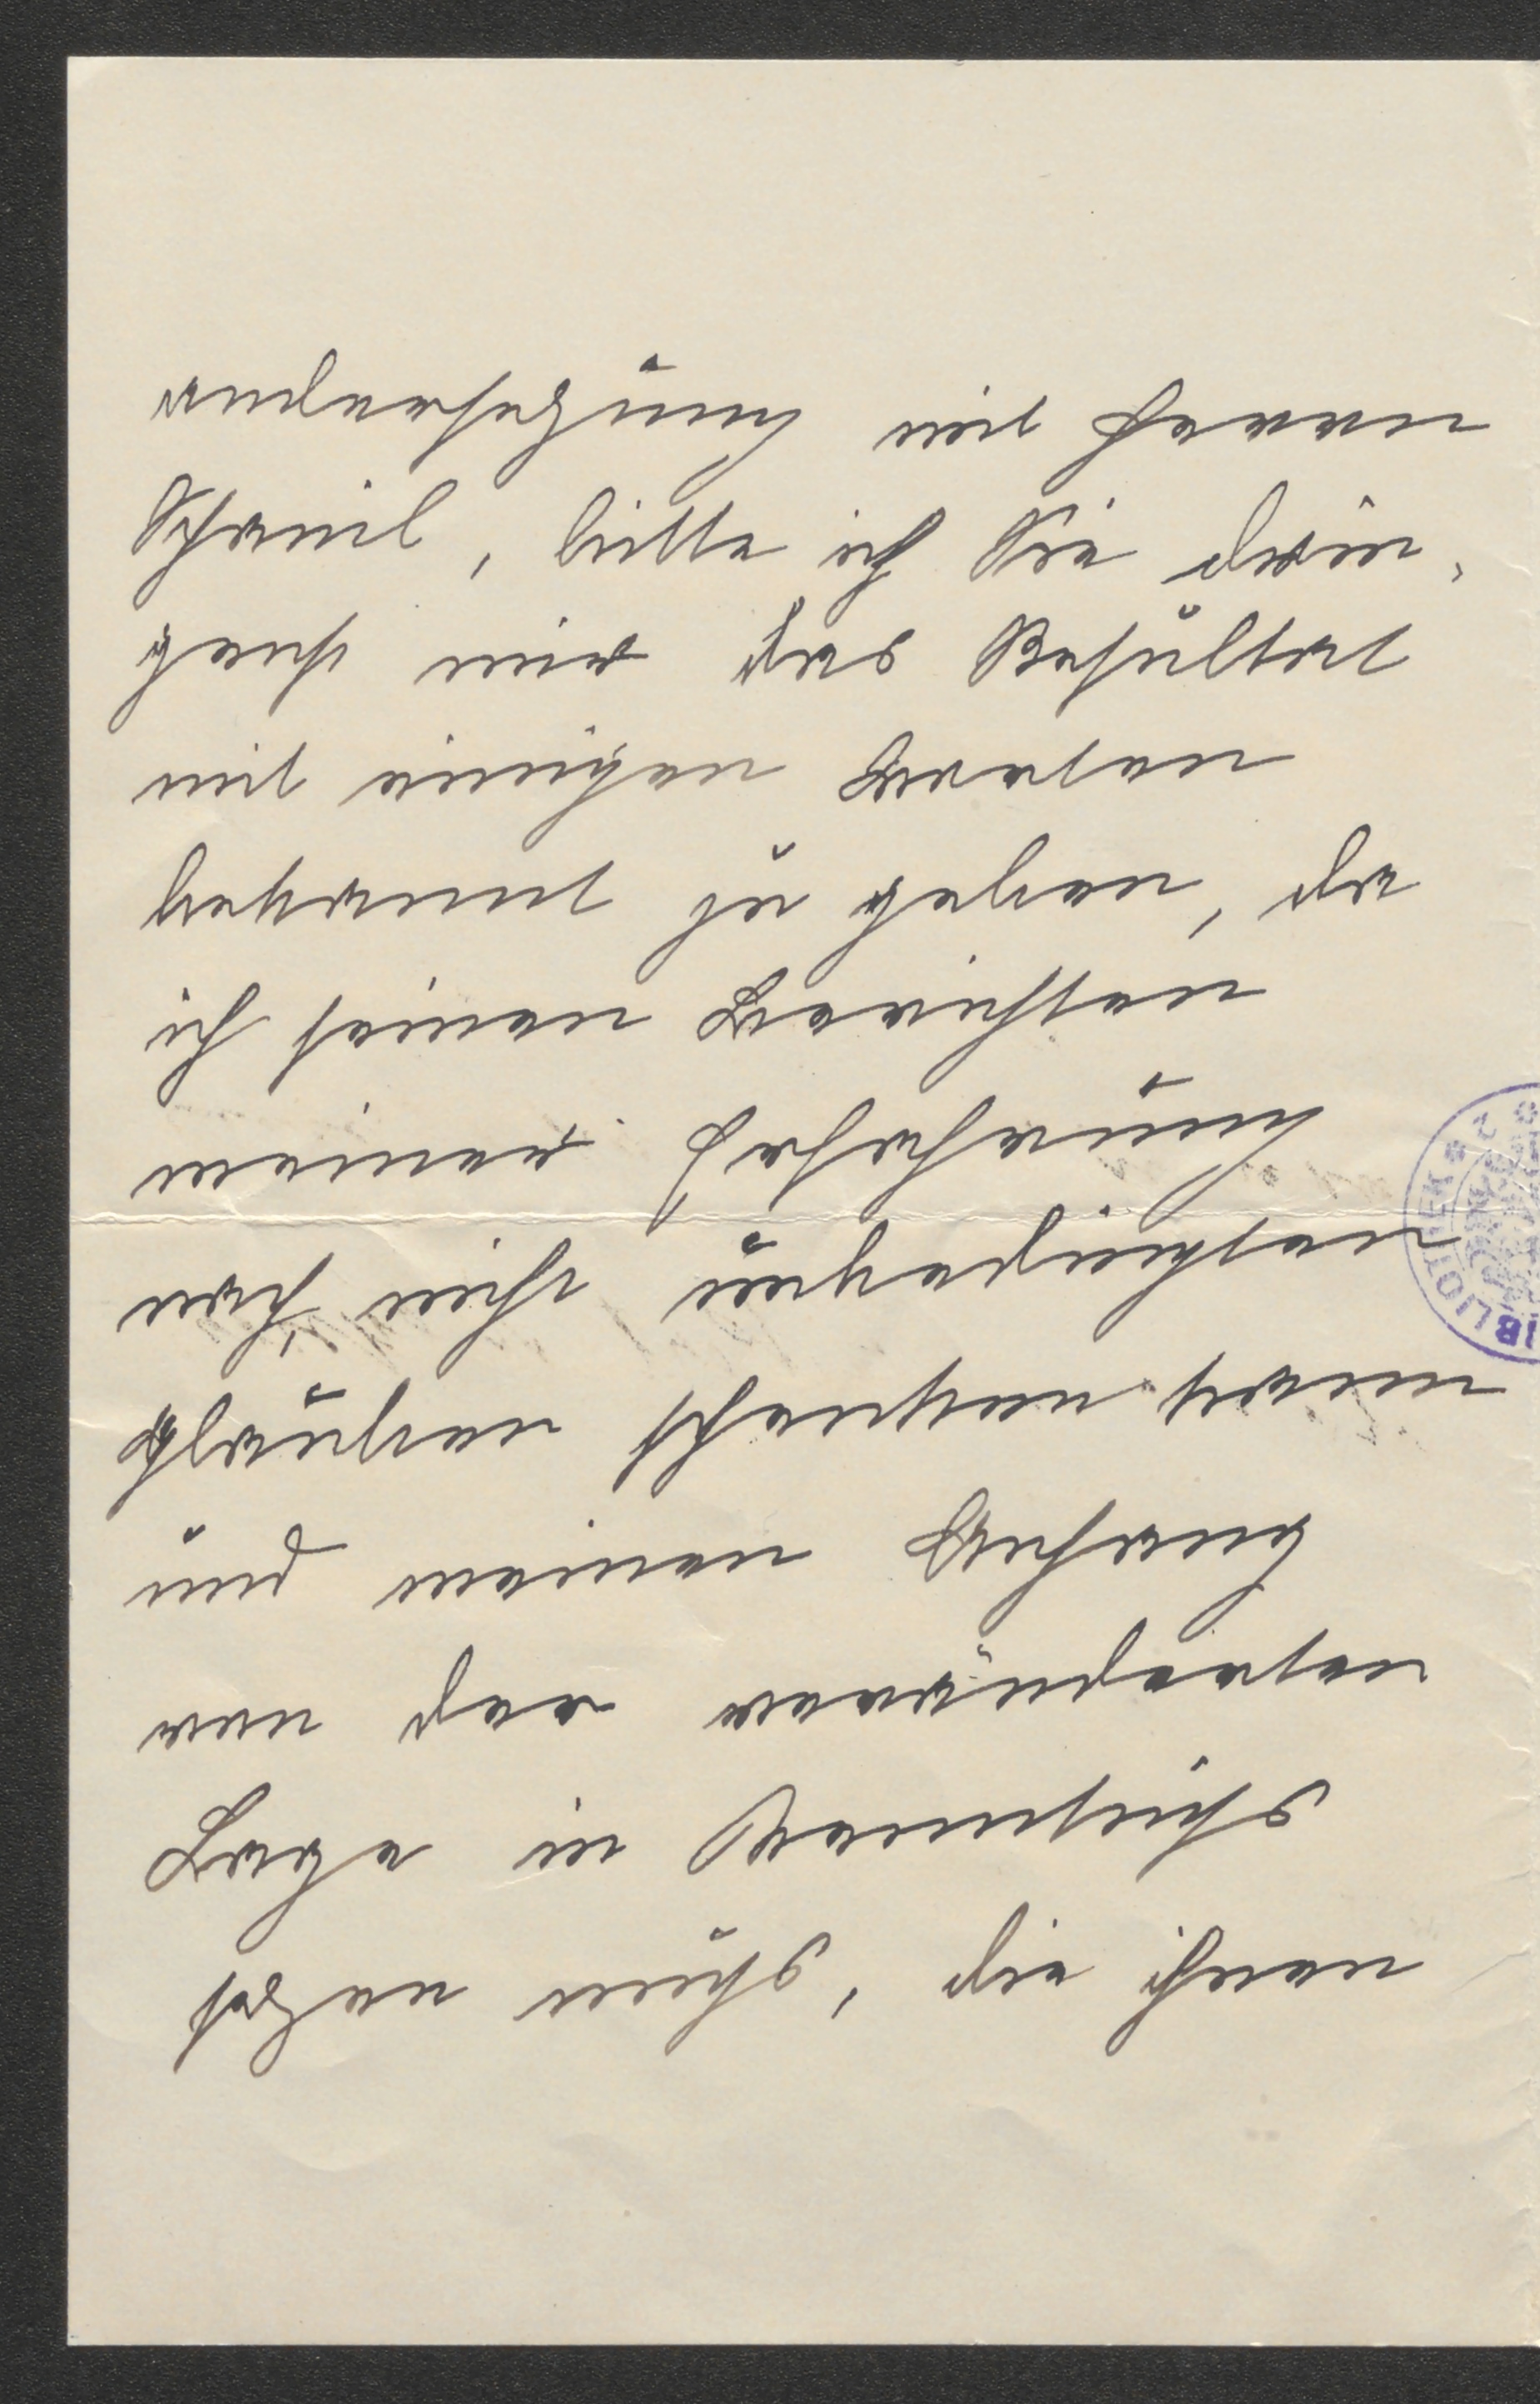 andersetzung mit Herrn
Schmid, bitte ich Sie drin-
gend mir das Resultat
mit einigen Worten
bekannt zu geben, da
ich seinen Berichten
meiner Erfahrung
nach nicht unbedingten
Glauben schenken kann
und meinen Besuch
von der veränderten
Lage in
muss, die Ihnen